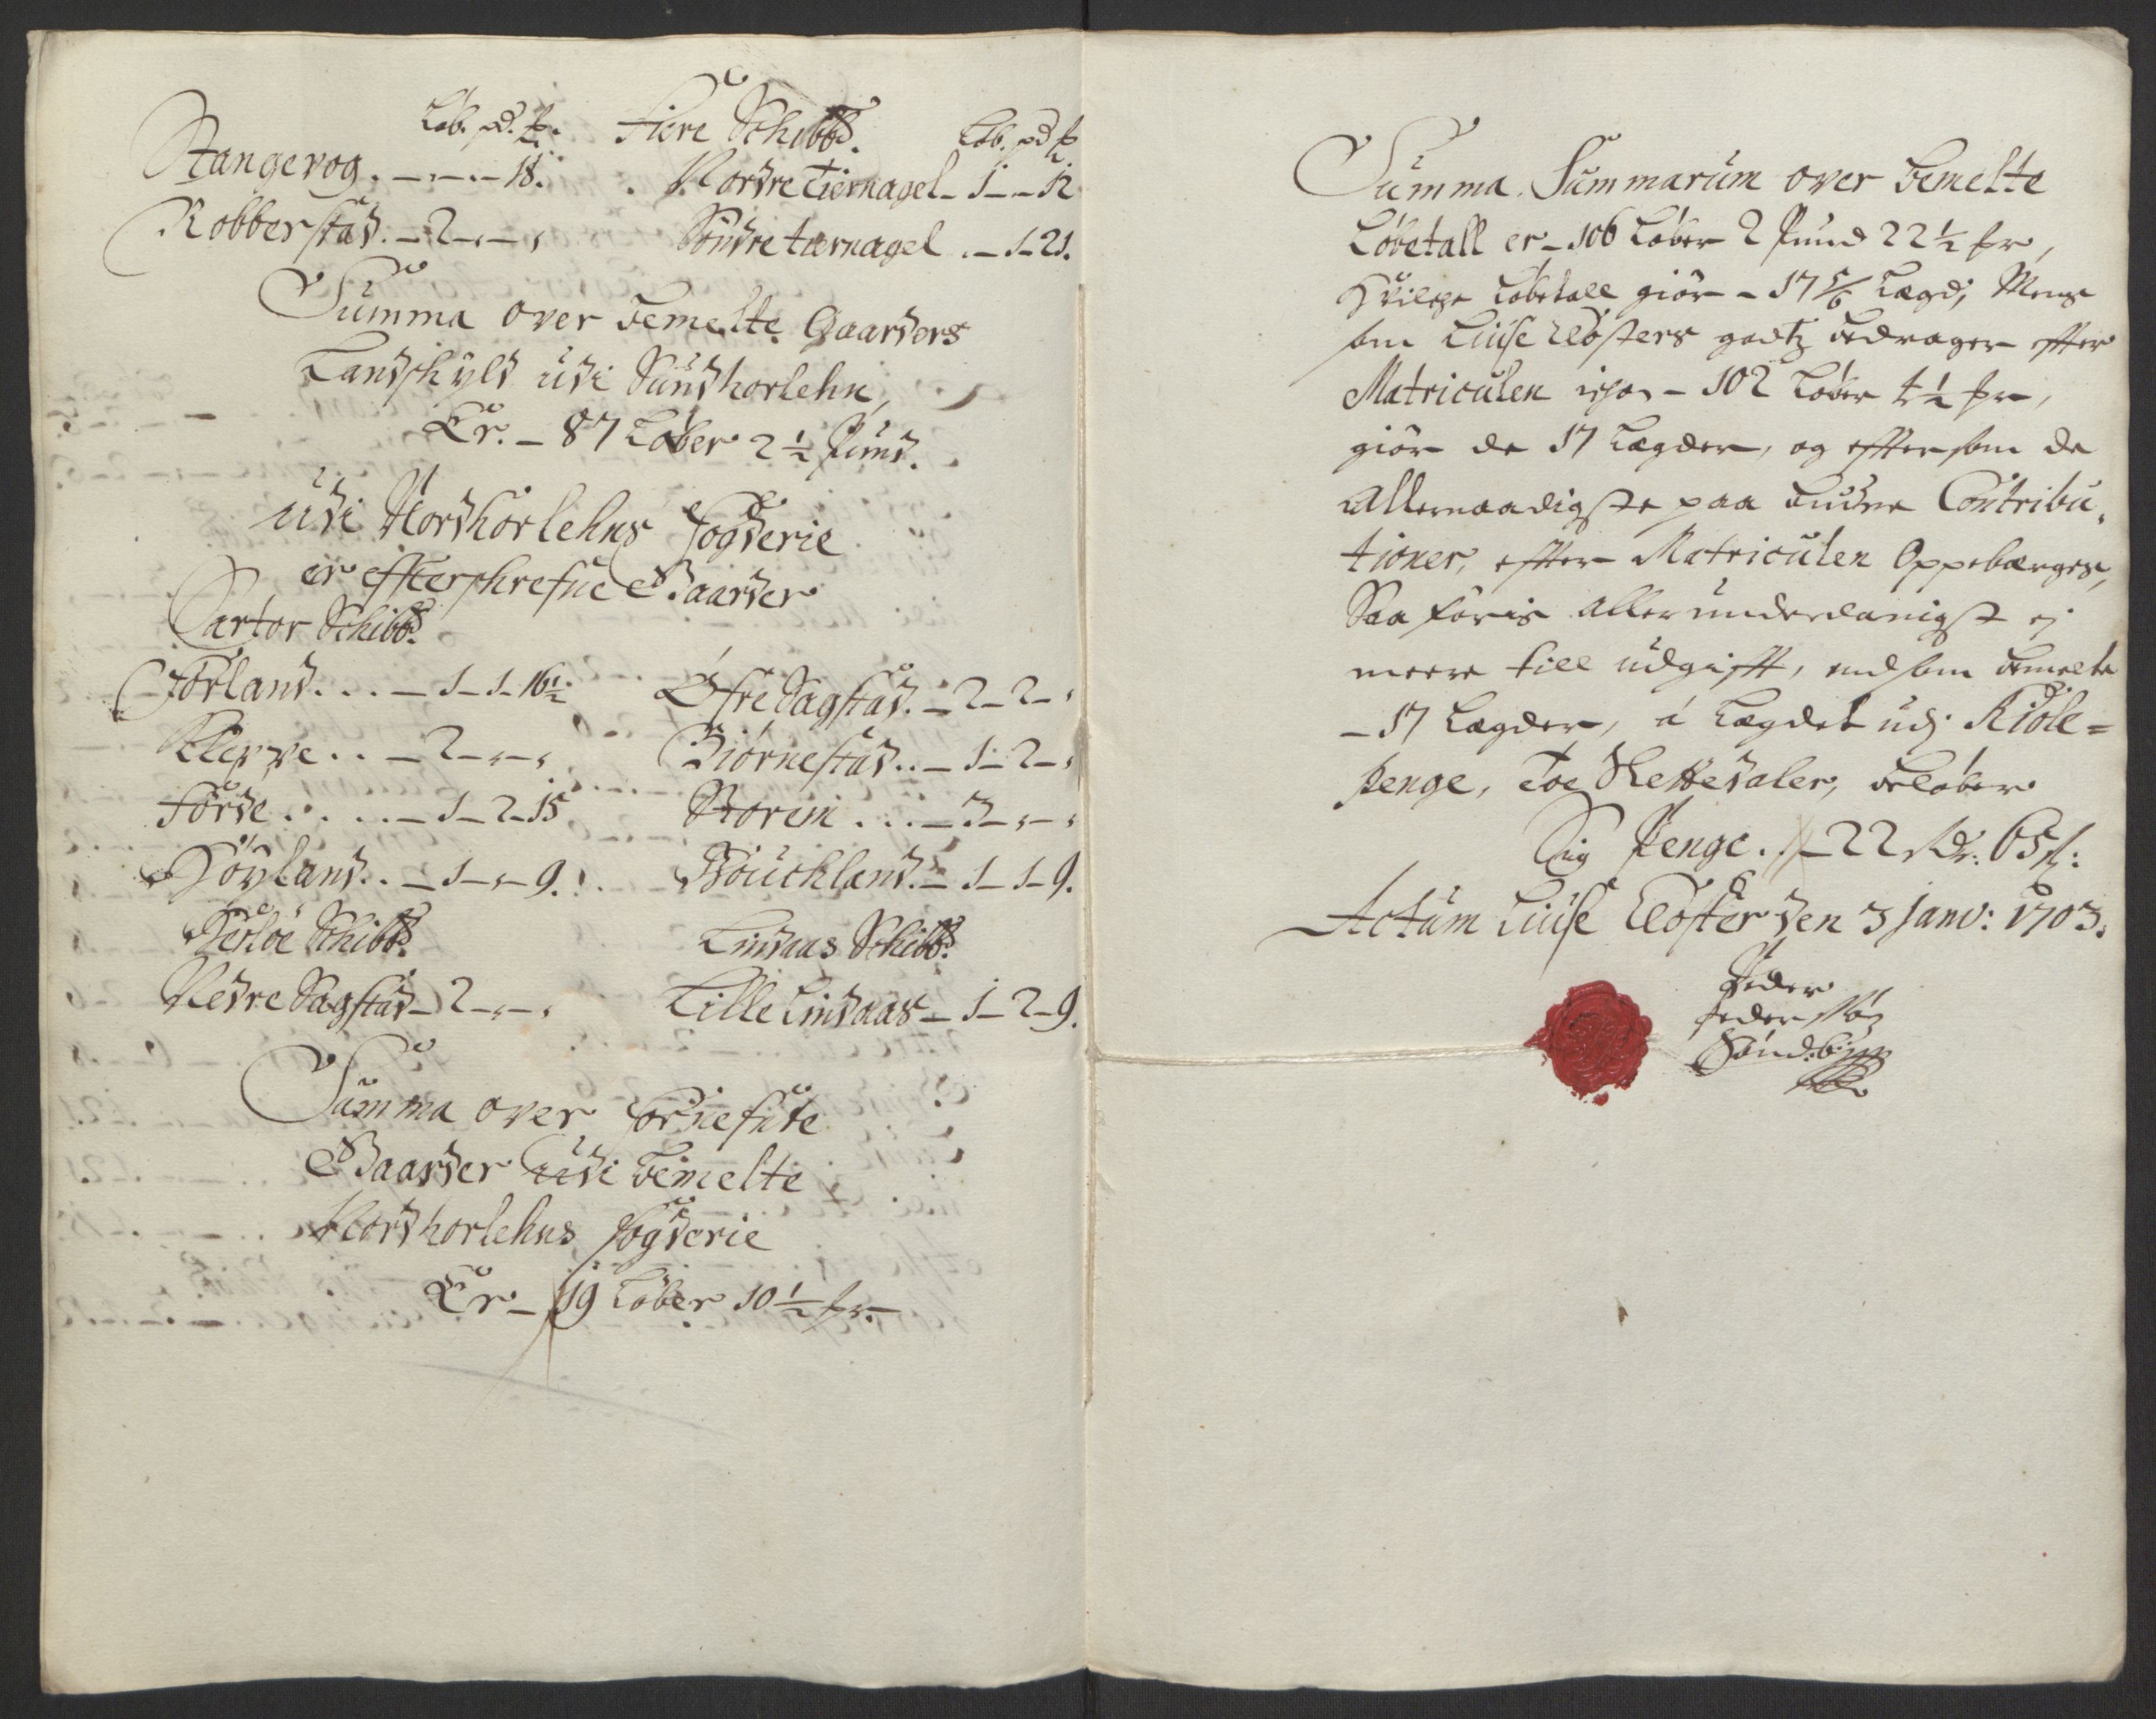 Løb. pd. fr. Fiere Schibbd. Løb. pd fr
Stangevog. - - - 18. Nordre Tiernagel - 1 - - 12
Robberstad. - 2 - - Søndre tiernagel . - 1 - 21.
Summa over bemelte Gaarders
Landskyld udi Sundhorlehn,
Er. - 87 Løber 2 1/2 Pund.
udi Nordhorlehns fogderie
er efterskrefne Gaarder
Sartor Schibbd.
Førland. . . - 1 - 1 - 16 1/2 Øfre Sagstad. - 2 - 2 -
Kleppe . . - 2 - - Biørnestad . . - 1 - 2 -
Førde . . . . - 1 - 2 - 15 Storem . . . - 3 - -
Høyland . . - 1 - - 9. Bouckland. - 1 - 1 - 9.
Herløe Schibbd. Lindaas Schibbd.
Nedre Sagstad - 2 - - Lille Lindaas - 1 - 2 - 9.
Summa over fornefnte
Gaarder udi bemelte
Nordhorlehns fogderie
Er - 19 Løber 10 1/2 fr. -
Summa Summarum over bemelte
Løbetall er - 106 Løber 2 Pund 22 1/2 fr,
Huilche Løbetall giør - 17 5/6 Lægd, Mens
som Liuse Closters godtz bedrager efter
Matriculen - 102 Løber 1/2 fr,
giør de 17 Lægder, og eftersom de
Allernaadigste paa budne Contribu,
tioner, efter Matriculen Oppebærges,
Saa føris allerunderdanigst ej
meere till udgifft, end som bemelte
- 17 Lægder, á Lægdet udj Kiole =
penge, Toe Slettedaler, beløber
Sig Penge. - 22 Rdr: 64 s:
Actum Liuse Closter den 3 Janv: 1703.
Peder
Pedersøn